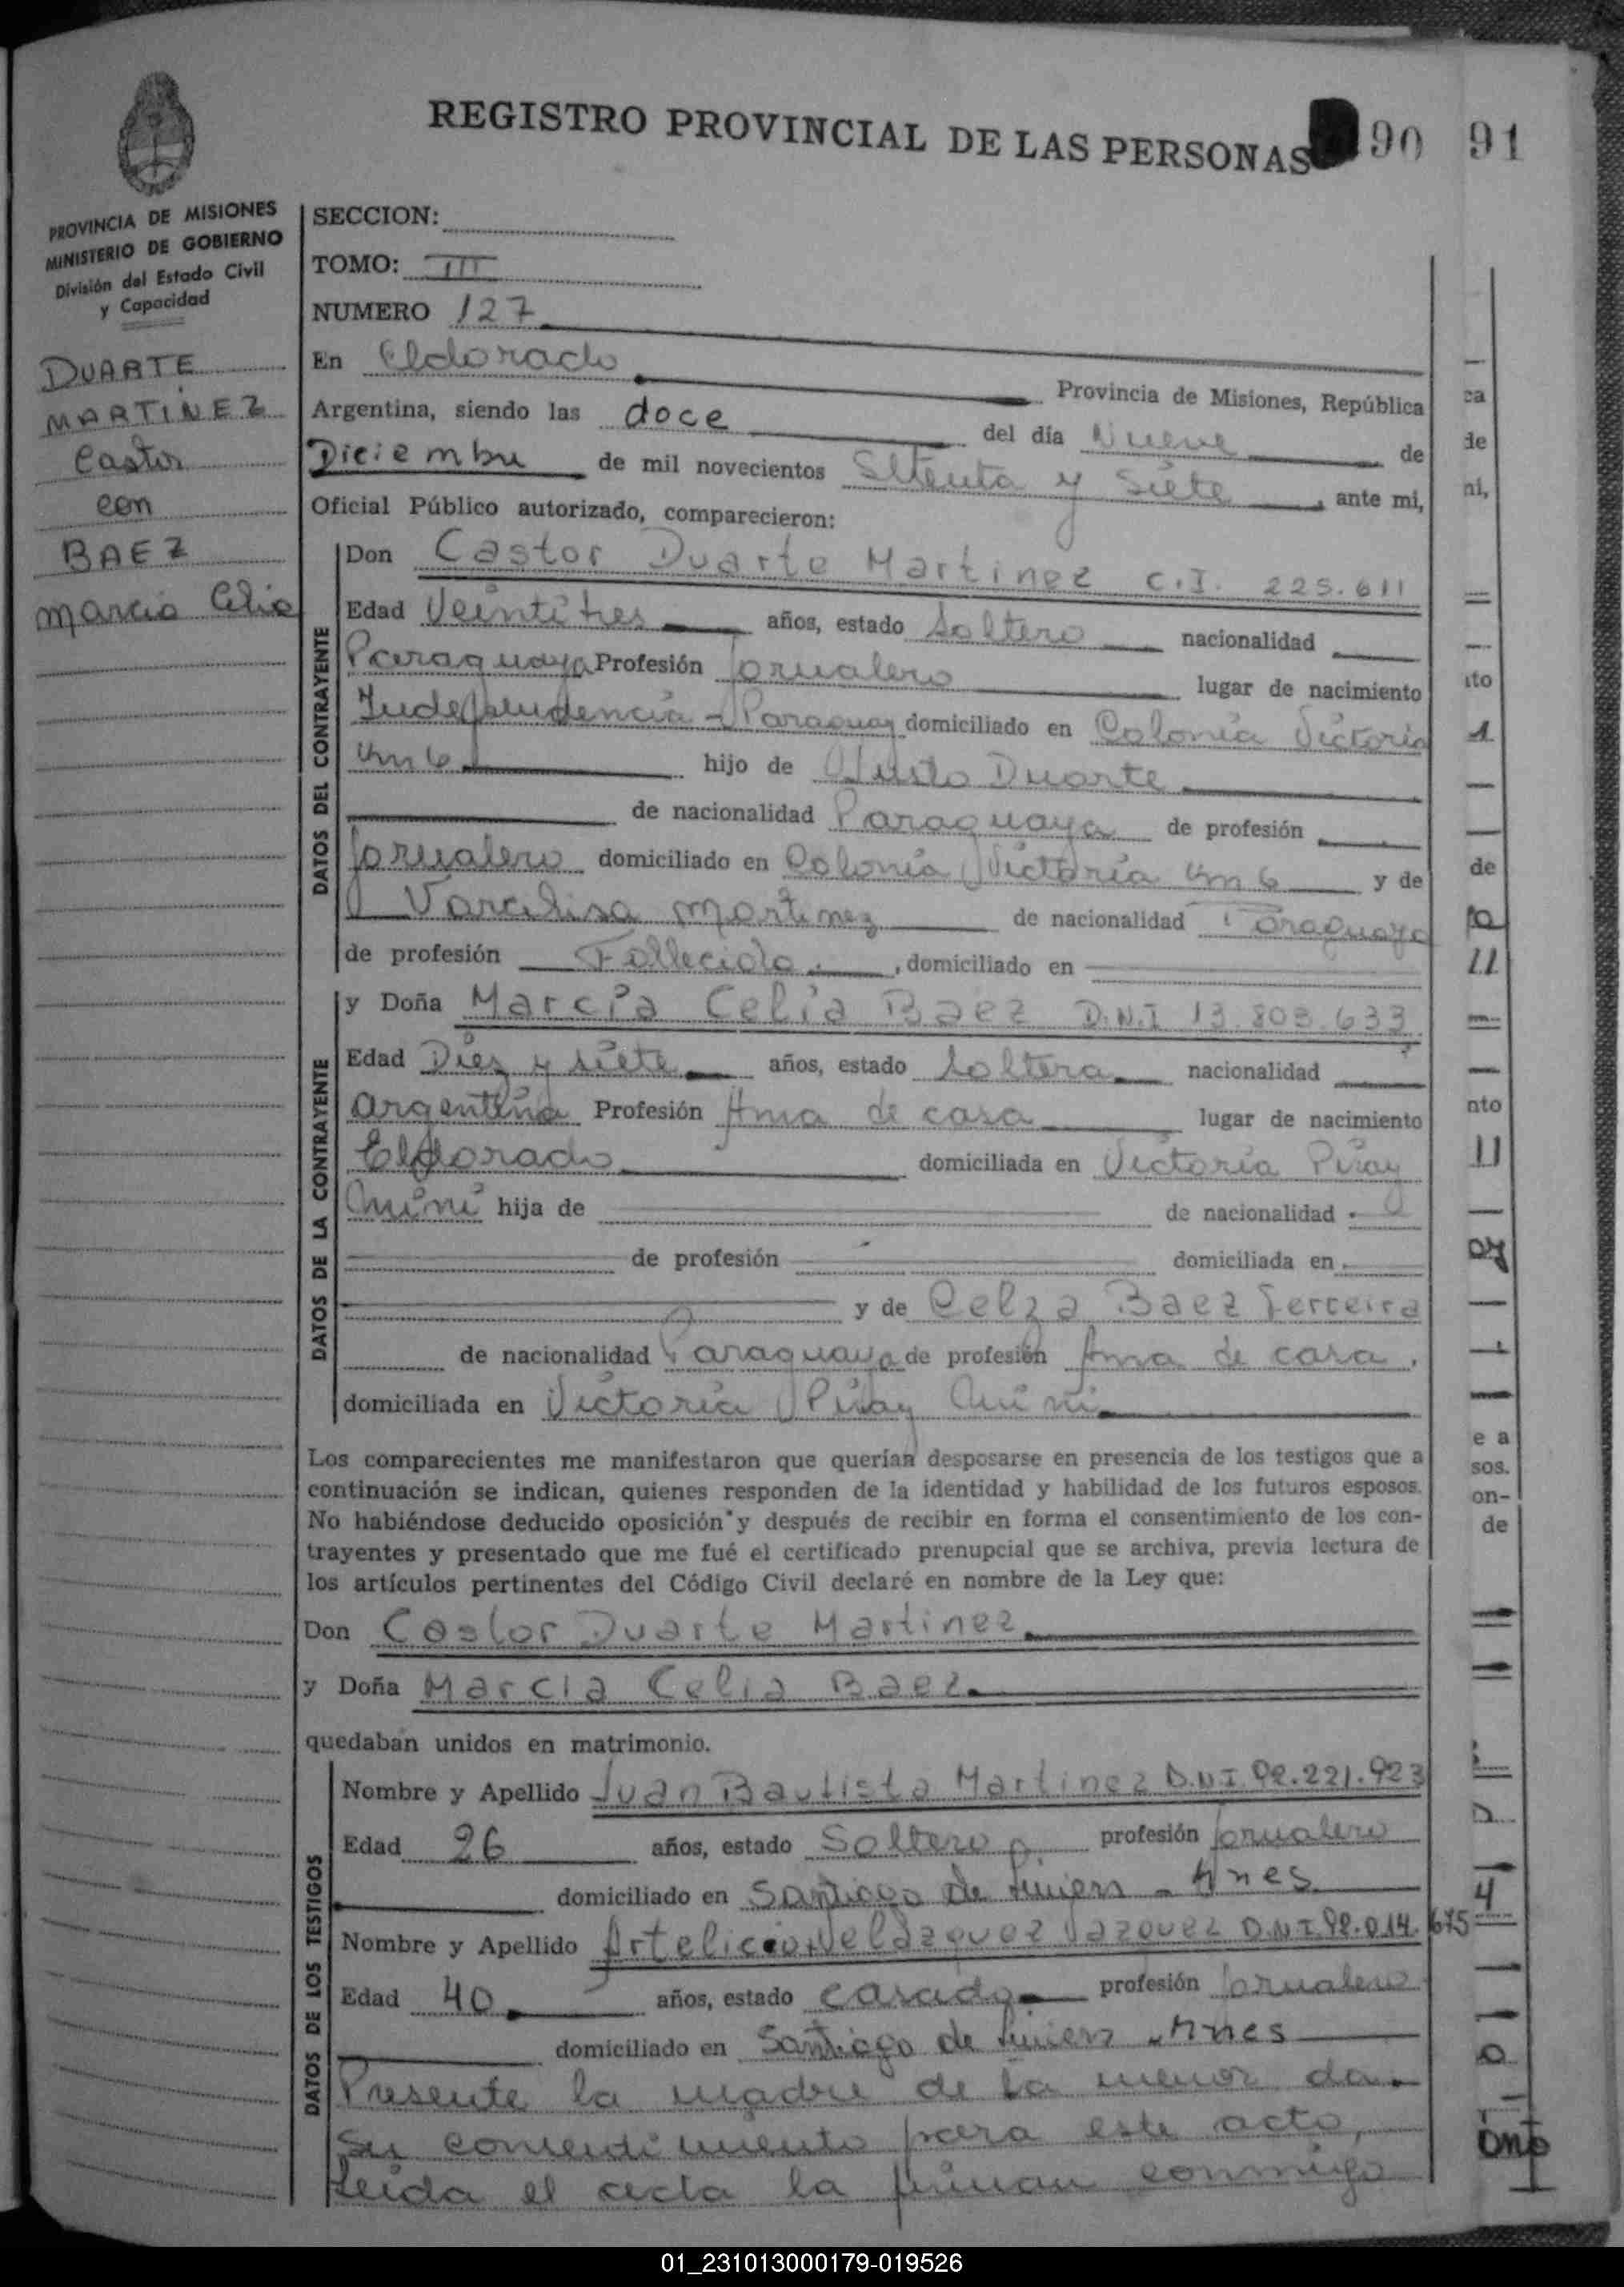 REGISTRO PROVINCIAL DE LAS PERSONAS 90 91
PROVINCIA DE MISIONES
MINISTERIO DE GOBIERNO
División del Estado Civil
y Capacidad
DUARTE
MARTINEZ
Castor
con
BAEZ
Marcia Celia
SECCION:
TOMO: III
NUMERO 127
En Eldorado Provincia de Misiones, República
Argentina, siendo las doce del día Nueve de
Diciembre de mil novecientos Setenta y Siete, ante mi,
Oficial Público autorizado, comparecieron:
DATOS DEL CONTRAYENTE
Don Castor Duarte Martinez C.I. 225.611
Edad Veintitres años, estado Soltero nacionalidad
Paraguaya Profesión Jornalero lugar de nacimiento
Independencia - Paraguay domiciliado en Colonia Victoria
Km 6 hijo de Justo Duarte
de nacionalidad Paraguaya de profesión
Jornalero domiciliado en Colonia Victoria Km 6 y de
Martinez de nacionalidad Paraguaya
de profesión Fallecida, domiciliado en
DATOS DE LA CONTRAYENTE
y Doña Marcia Celia Baez D.N.I 13.803.633
Edad Diez y siete años, estado Soltera nacionalidad
argentina Profesión Ama de casa lugar de nacimiento
Eldorado domiciliada en Victoria Piray
Miní hija de de nacionalidad
de profesión domiciliada en
y de Celza Baez Ferreira
de nacionalidad Paraguaya de profesión Ama de casa.
domiciliada en Victoria Piray Miní
Los comparecientes me manifestaron que querían desposarse en presencia de los testigos que a
continuación se indican, quienes responden de la identidad y habilidad de los futuros esposos.
No habiéndose deducido oposición y después de recibir en forma el consentimiento de los con-
trayentes y presentado que me fué el certificado prenupcial que se archiva, previa lectura de
los artículos pertinentes del Código Civil declaré en nombre de la Ley que:
Don Castor Duarte Martinez
y Doña Marcia Celia Baez
quedaban unidos en matrimonio.
DATOS DE LOS TESTIGOS
Nombre y Apellido Juan Bautista Martinez D.N.I. 92.221.923
Edad 26 años, estado Soltero profesión Jornalero
domiciliado en Santiago de Liniers - Mnes
Nombre y Apellido Artelicio Velázquez Vazquez D.N.I. 92.014.675
Edad 40 años, estado casado profesión Jornalero
domiciliado en Santiago de Liniers - Mnes
Presente la madre de la menor da
su consentimiento para este acto,
Leída el acta la firman conmigo
01_231013000179-019526